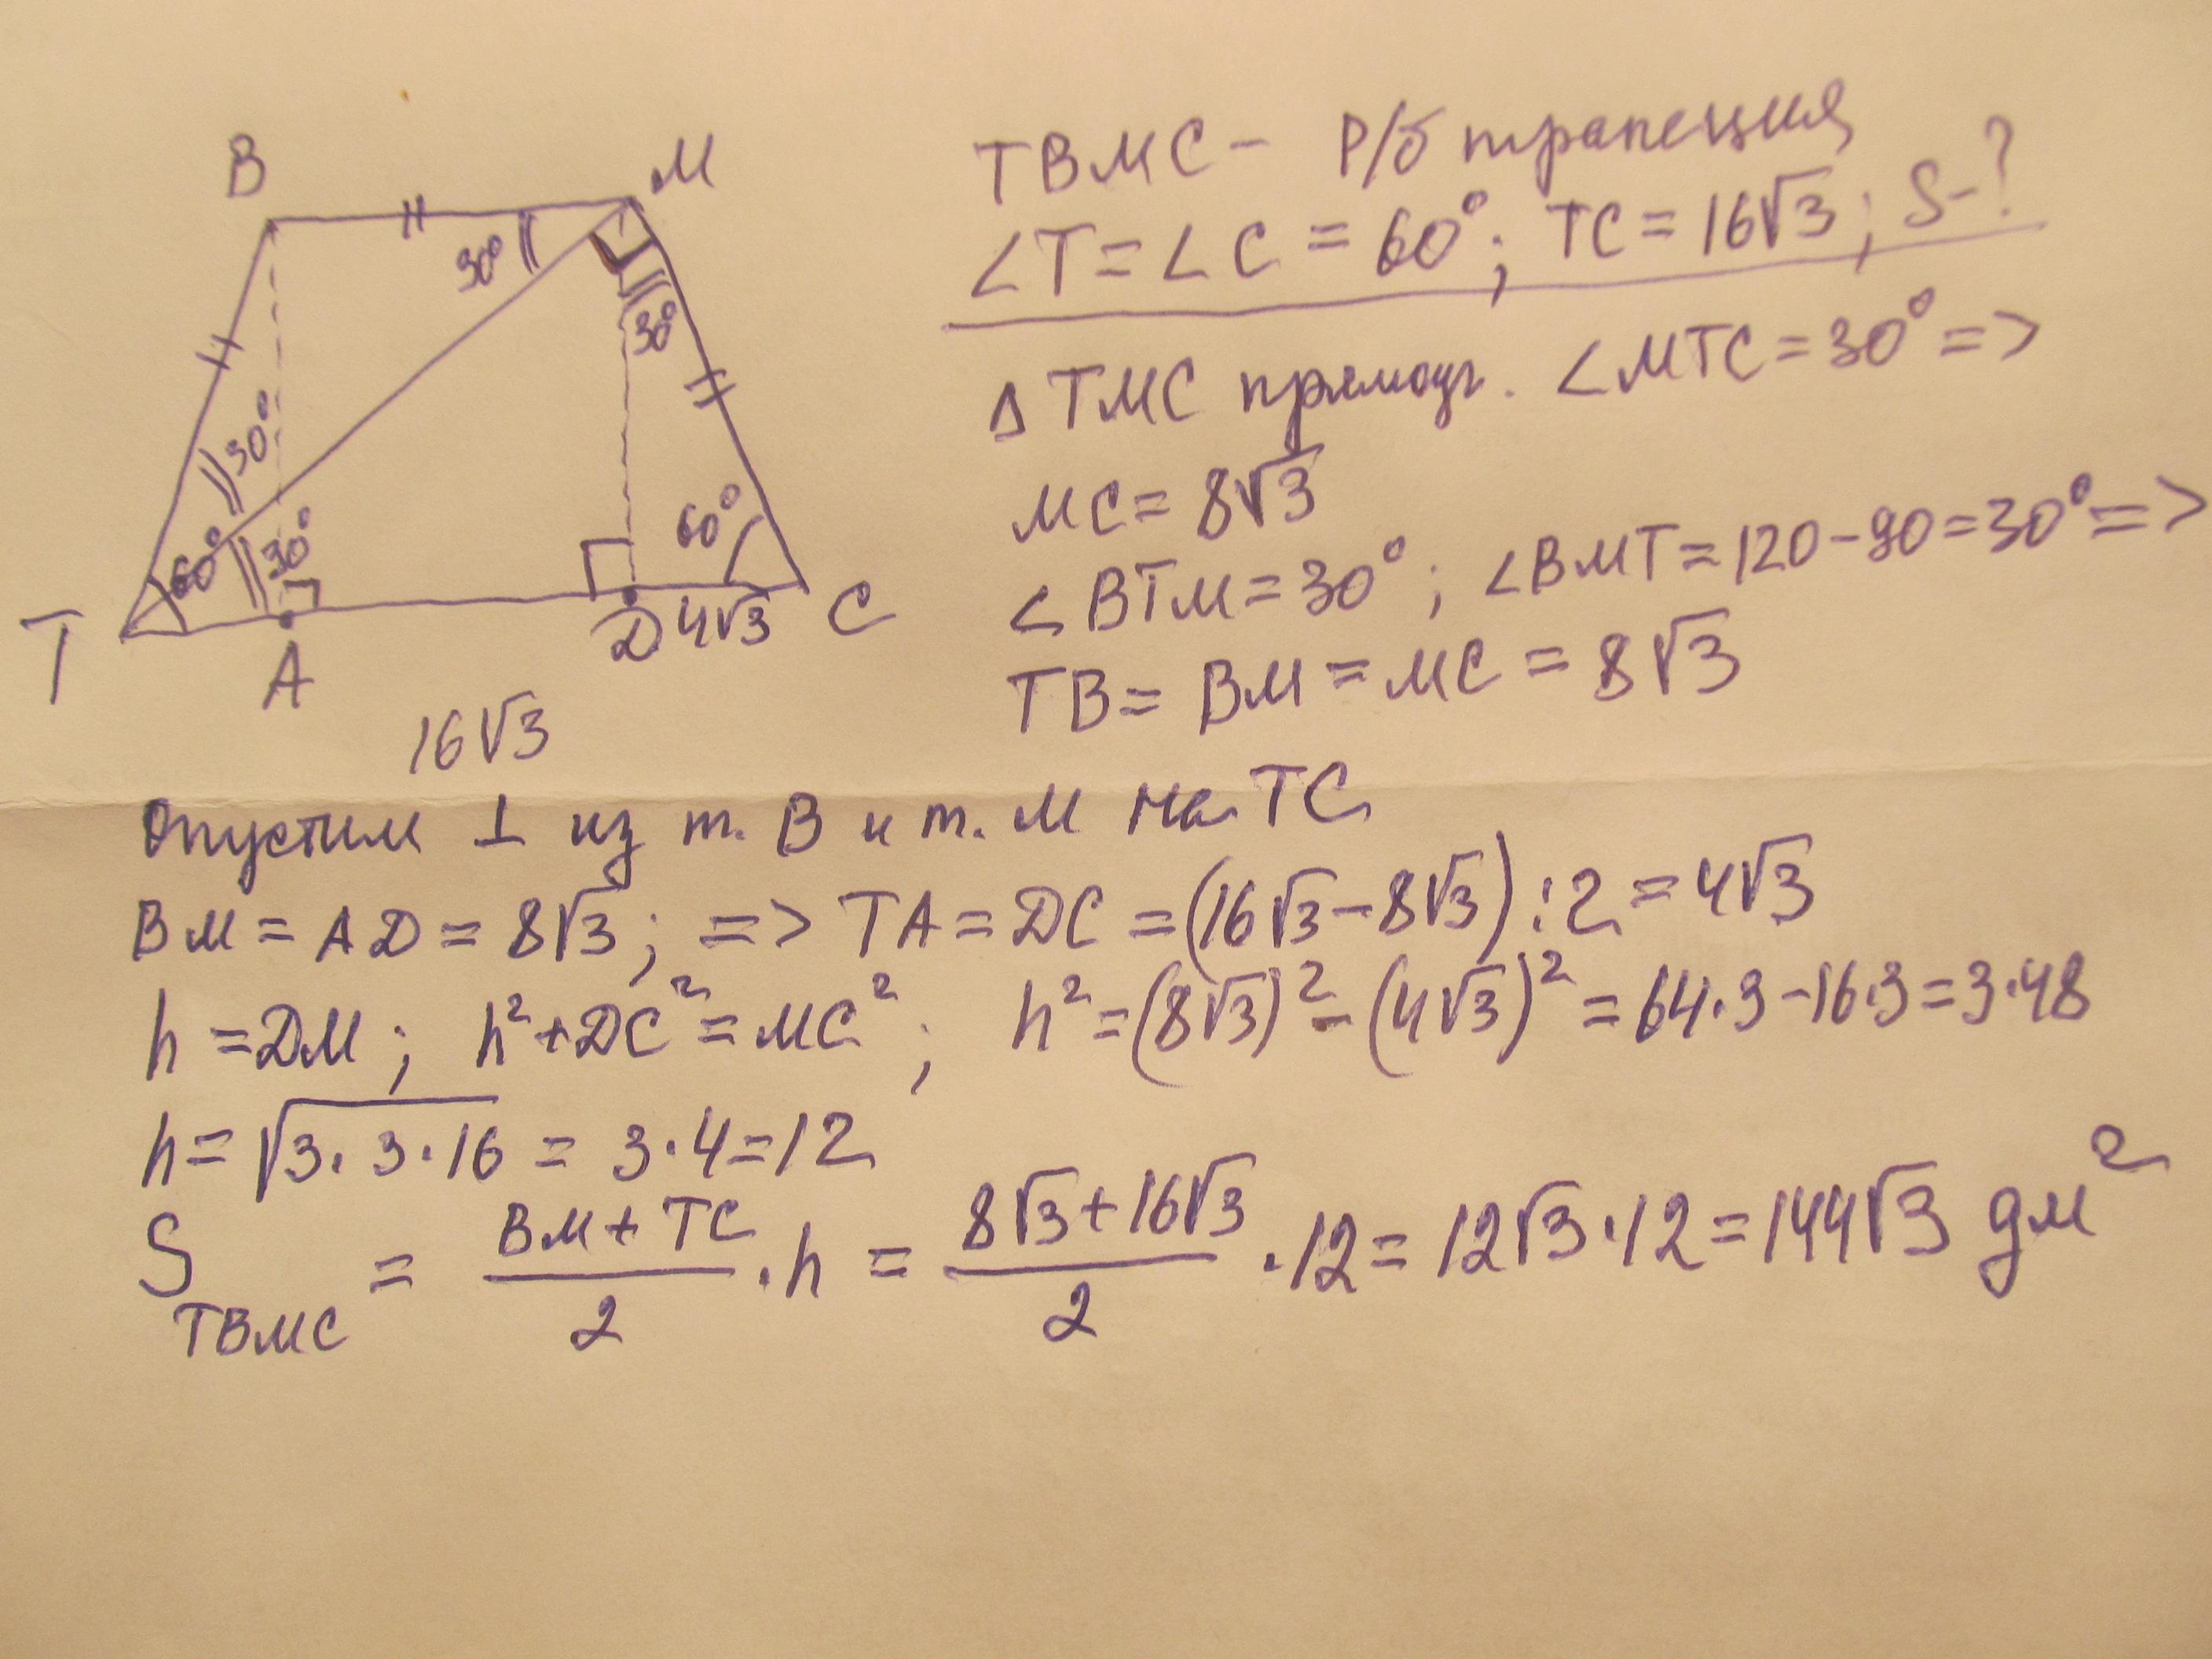 B
M
30°
30°
30°
60°
30°
60°
T
A
D
4√3
C
16√3
TBMC - Р/б трапеция
∠T = ∠C = 60°; TC = 16√3; S-?
Δ TMC прямоуг. ∠MTC = 30° =>
MC = 8√3
∠BTM = 30°; ∠BMT = 120-90 = 30° =>
TB = BM = MC = 8√3
Опустим ⊥ из т. B и т. M на TC
BM = AD = 8√3; => TA = DC = (16√3 - 8√3) : 2 = 4√3
h = DM; h² + DC² = MC²; h² = (8√3)² - (4√3)² = 64·3 - 16·3 = 3·48
h = √3·3·16 = 3·4 = 12
S TBMC = (BM + TC)/2 · h = (8√3 + 16√3)/2 · 12 = 12√3·12 = 144√3 дм²